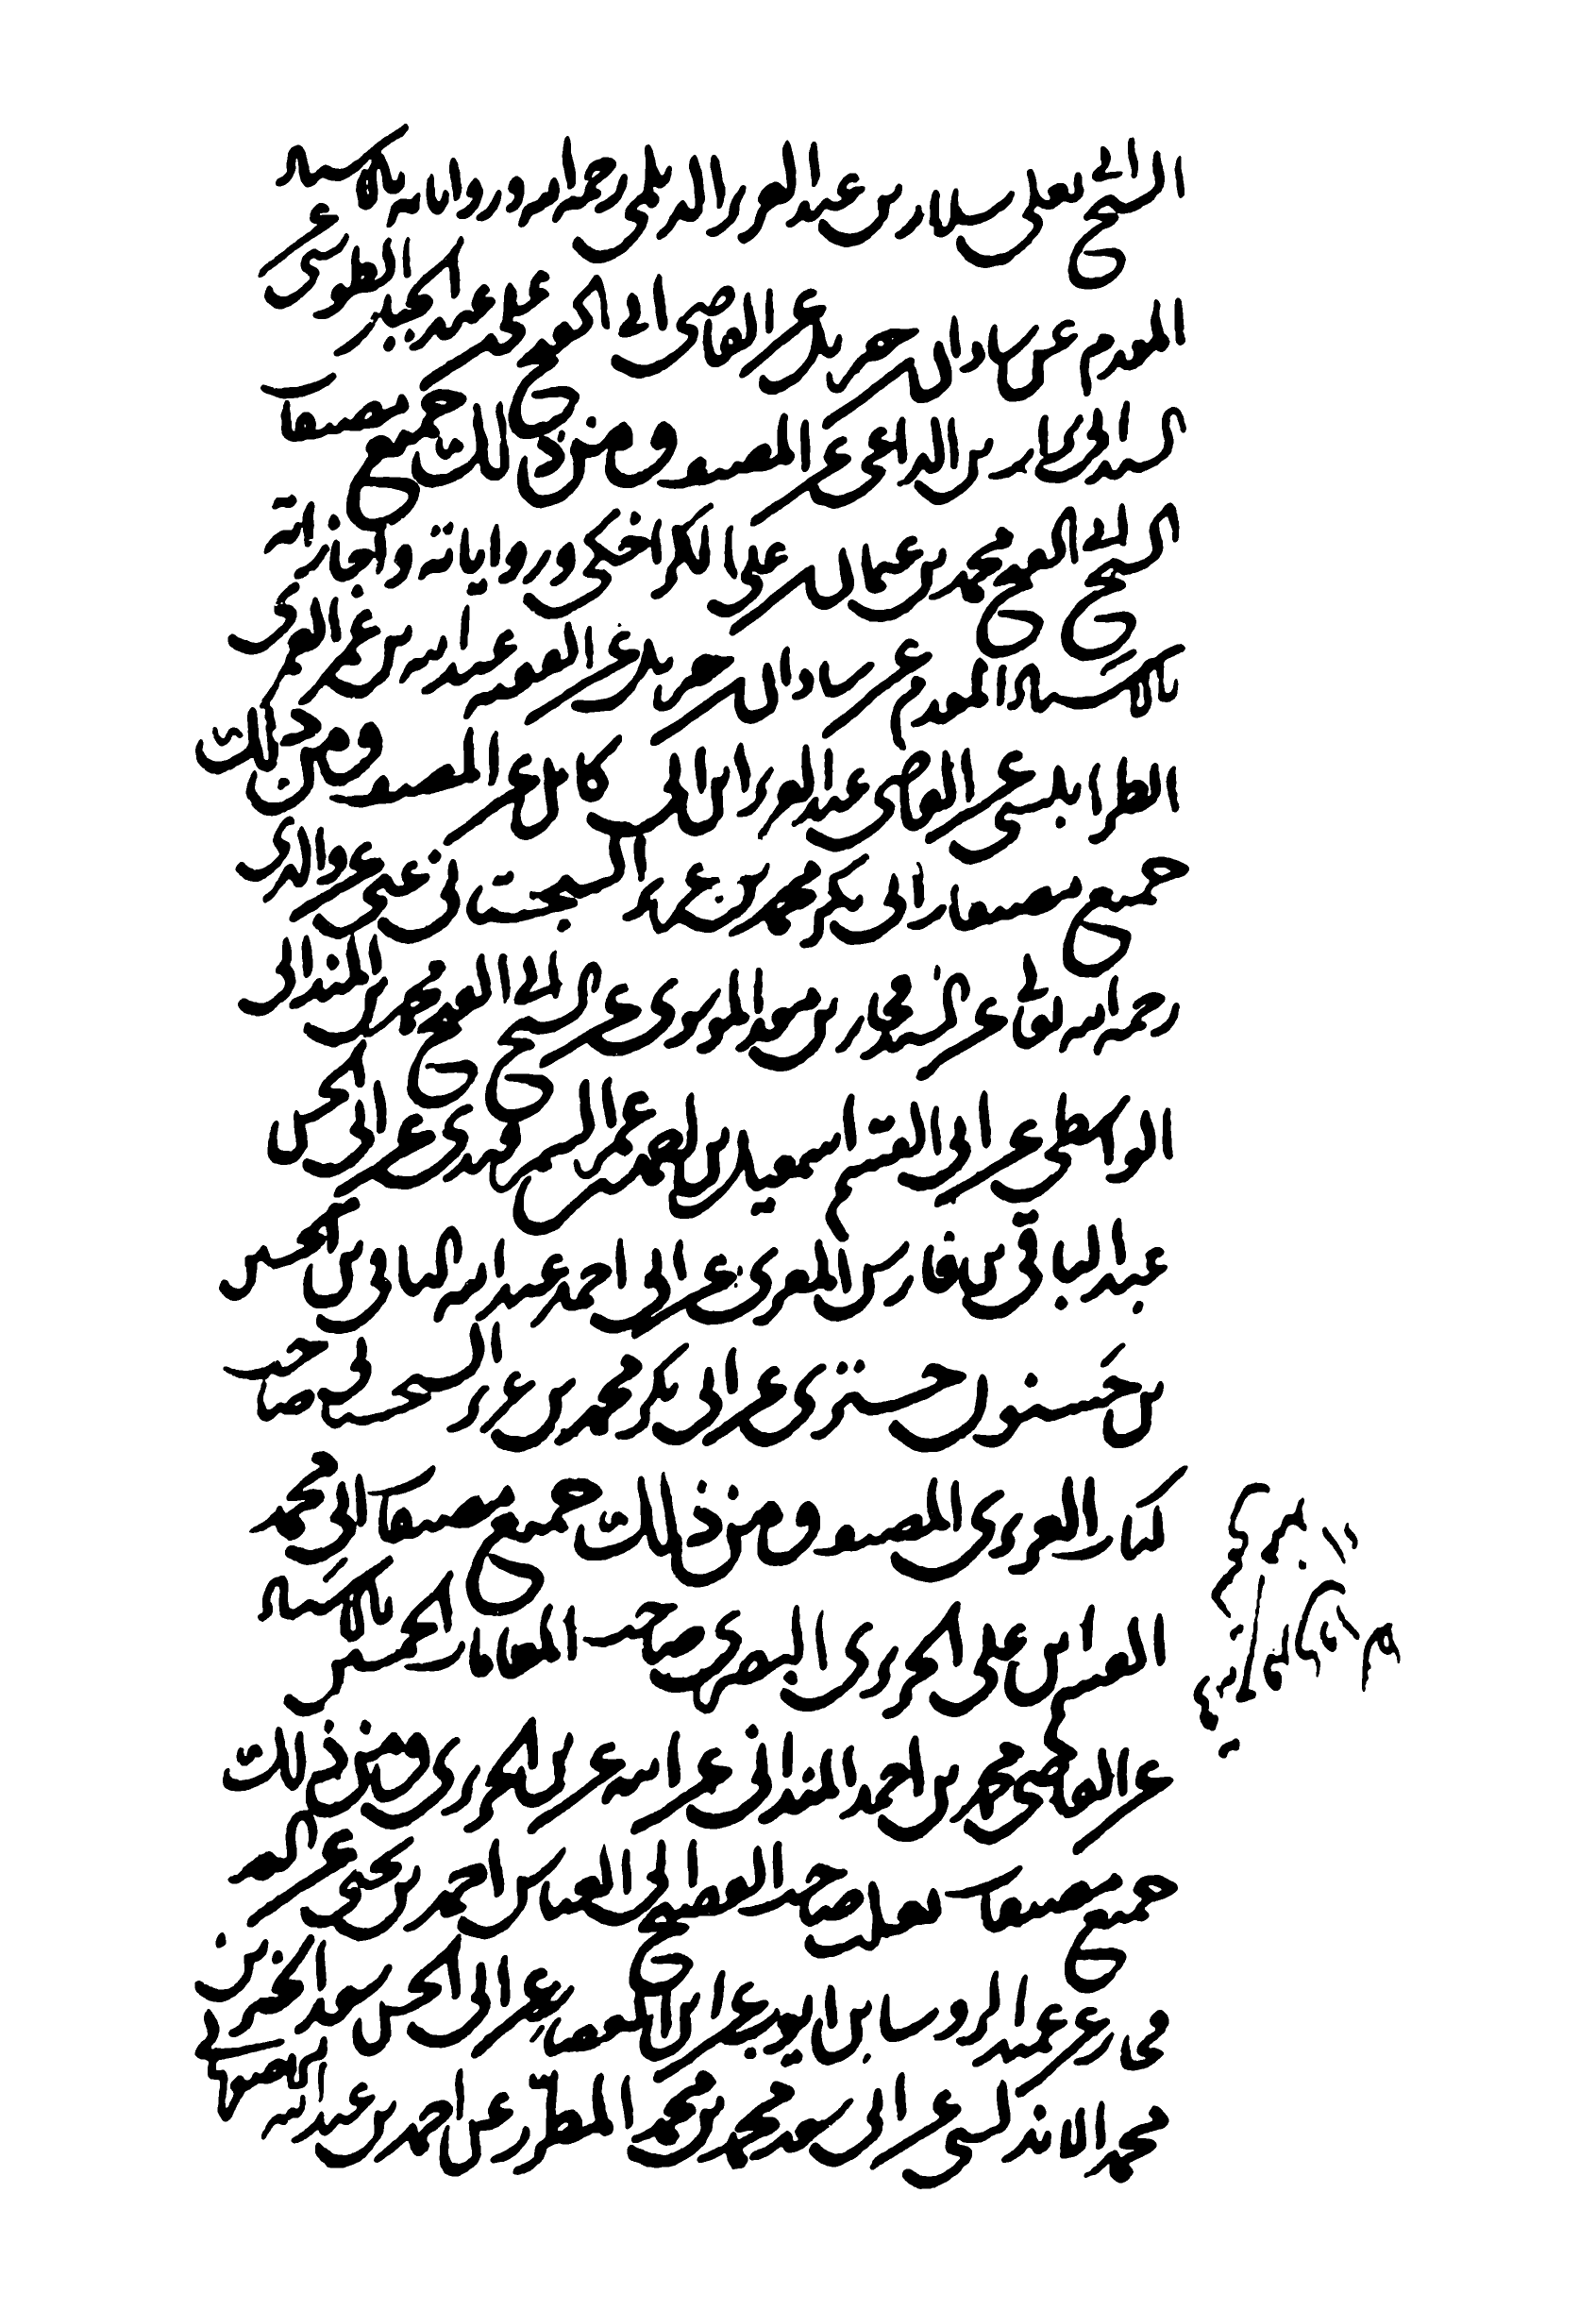 الشيخ ابي يعلى سلار بن عبد العزيز الديلمي رحمه الله ورواياته بالاسناد
المقدم عن شاذان بن جبرئيل عن القاضي ابي الفتح علي بن عبد الجبار الطوسي
السيد ابي تراب بن الداعي عن المصنف ومن ذلك جميع مصنفات
الشيخ ابي الفتح محمد بن عثمان بن علي الكراجكي ورواياته واجازاته
بالاسناد المقدم عن شاذان بن جبرئيل عن الفقيه عبد الله بن عمر العمري
الطرابلسي عن القاضي عبد العزيز ابن ابي كامل عن المصنف ومن ذلك
جميع مصنفات ابي بكر محمد بن عزيز السجستاني عني عن والدي
رحمه الله تعالى عن السيد فخار بن معد الموسوي عن الشيخ ابي الفتح محمد بن المندائي
الواسطي عن ابي القسم اسمعيل بن احمد عمر السمرقندي عن ابي الحسن
عبد الباقي بن فارس المقرئ عن ابي احمد عبد الله السامري بن الحسين
بن حسنون عن ابي بكر محمد بن عزيز السجستاني صاحب
كتاب العزيزي المصنف ومن ذلك جميع مصنفات ابي محمد
القسم بن علي الحريري البصري صاحب المقامات الخمسين بالاسناد
عن القاضي محمد بن احمد المندائي عن ابيه عن الحريري ومن ذلك
جميع مصنفات ثعلب صاحب الفصيح ابي العباس احمد بن يحيى عن السيد
فخار عن عميد الرؤسا بن ايوب عن ابن العصار عن ابي الحسن سعد الخير بن
محمد الاندلسي عن ابي سعد محمد بن محمد المطرز عن احمد بن عبد الله الاصبهاني